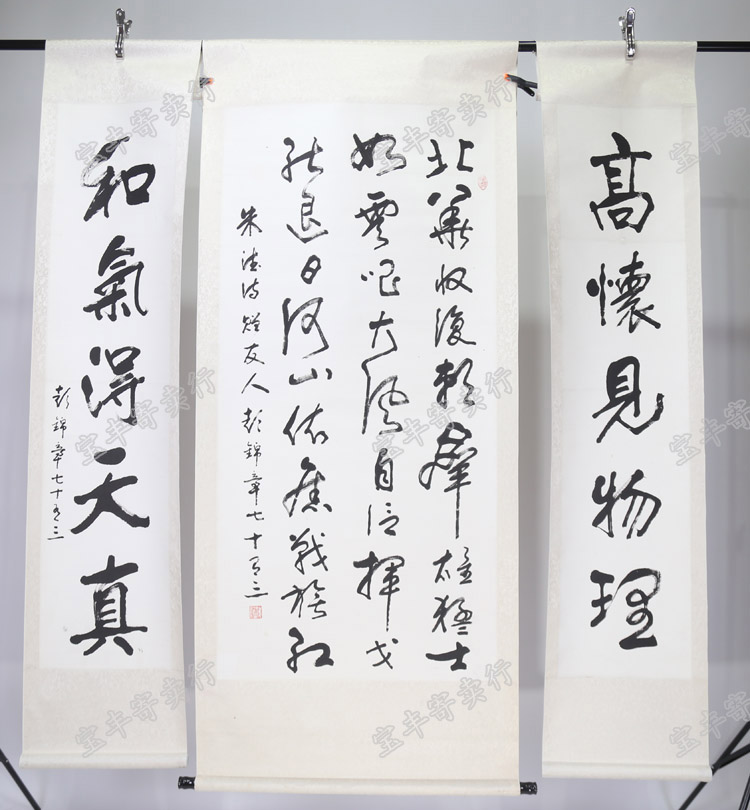 高懷見物理
北華收復賴羣雄猛士
如雲唱大風自信揮戈
能退日河山依舊戰旗紅
朱德詩贈友人 彭錦章七十有三
和氣得天真
彭錦章七十有三
宝丰寄卖行
宝丰寄卖行
宝丰寄卖行
宝丰寄卖行
宝丰寄卖行
宝丰寄卖行
宝丰寄卖行
宝丰寄卖行
宝丰寄卖行